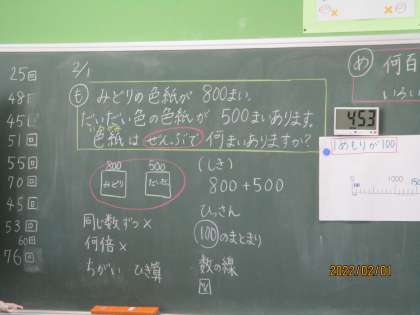 2/1
も みどりの色紙が 800まい、
だいだい色の色紙が 500まいあります。
色紙は ぜんぶで 何まいありますか?
め 何百
いろい
25回
48回
45回
51回
55回
70回
45回
53回
60回
76回
800
みどり
500
だいだい
同じ数ずつ×
何倍×
ちがい ひき算
(しき)
800+500
ひっさん
100のまとまり
数の線
図
453
1めもりが100
1000
2022/02/01